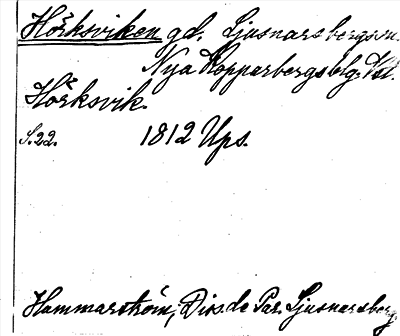 Hörksviken gd. Ljusnarsbergssn.
Nya Kopparbergs blg. Vstl.
Hörksvik.
S. 22. 1812 Ups.
Hammarström, Diss de Par. Ljusnarsberg.